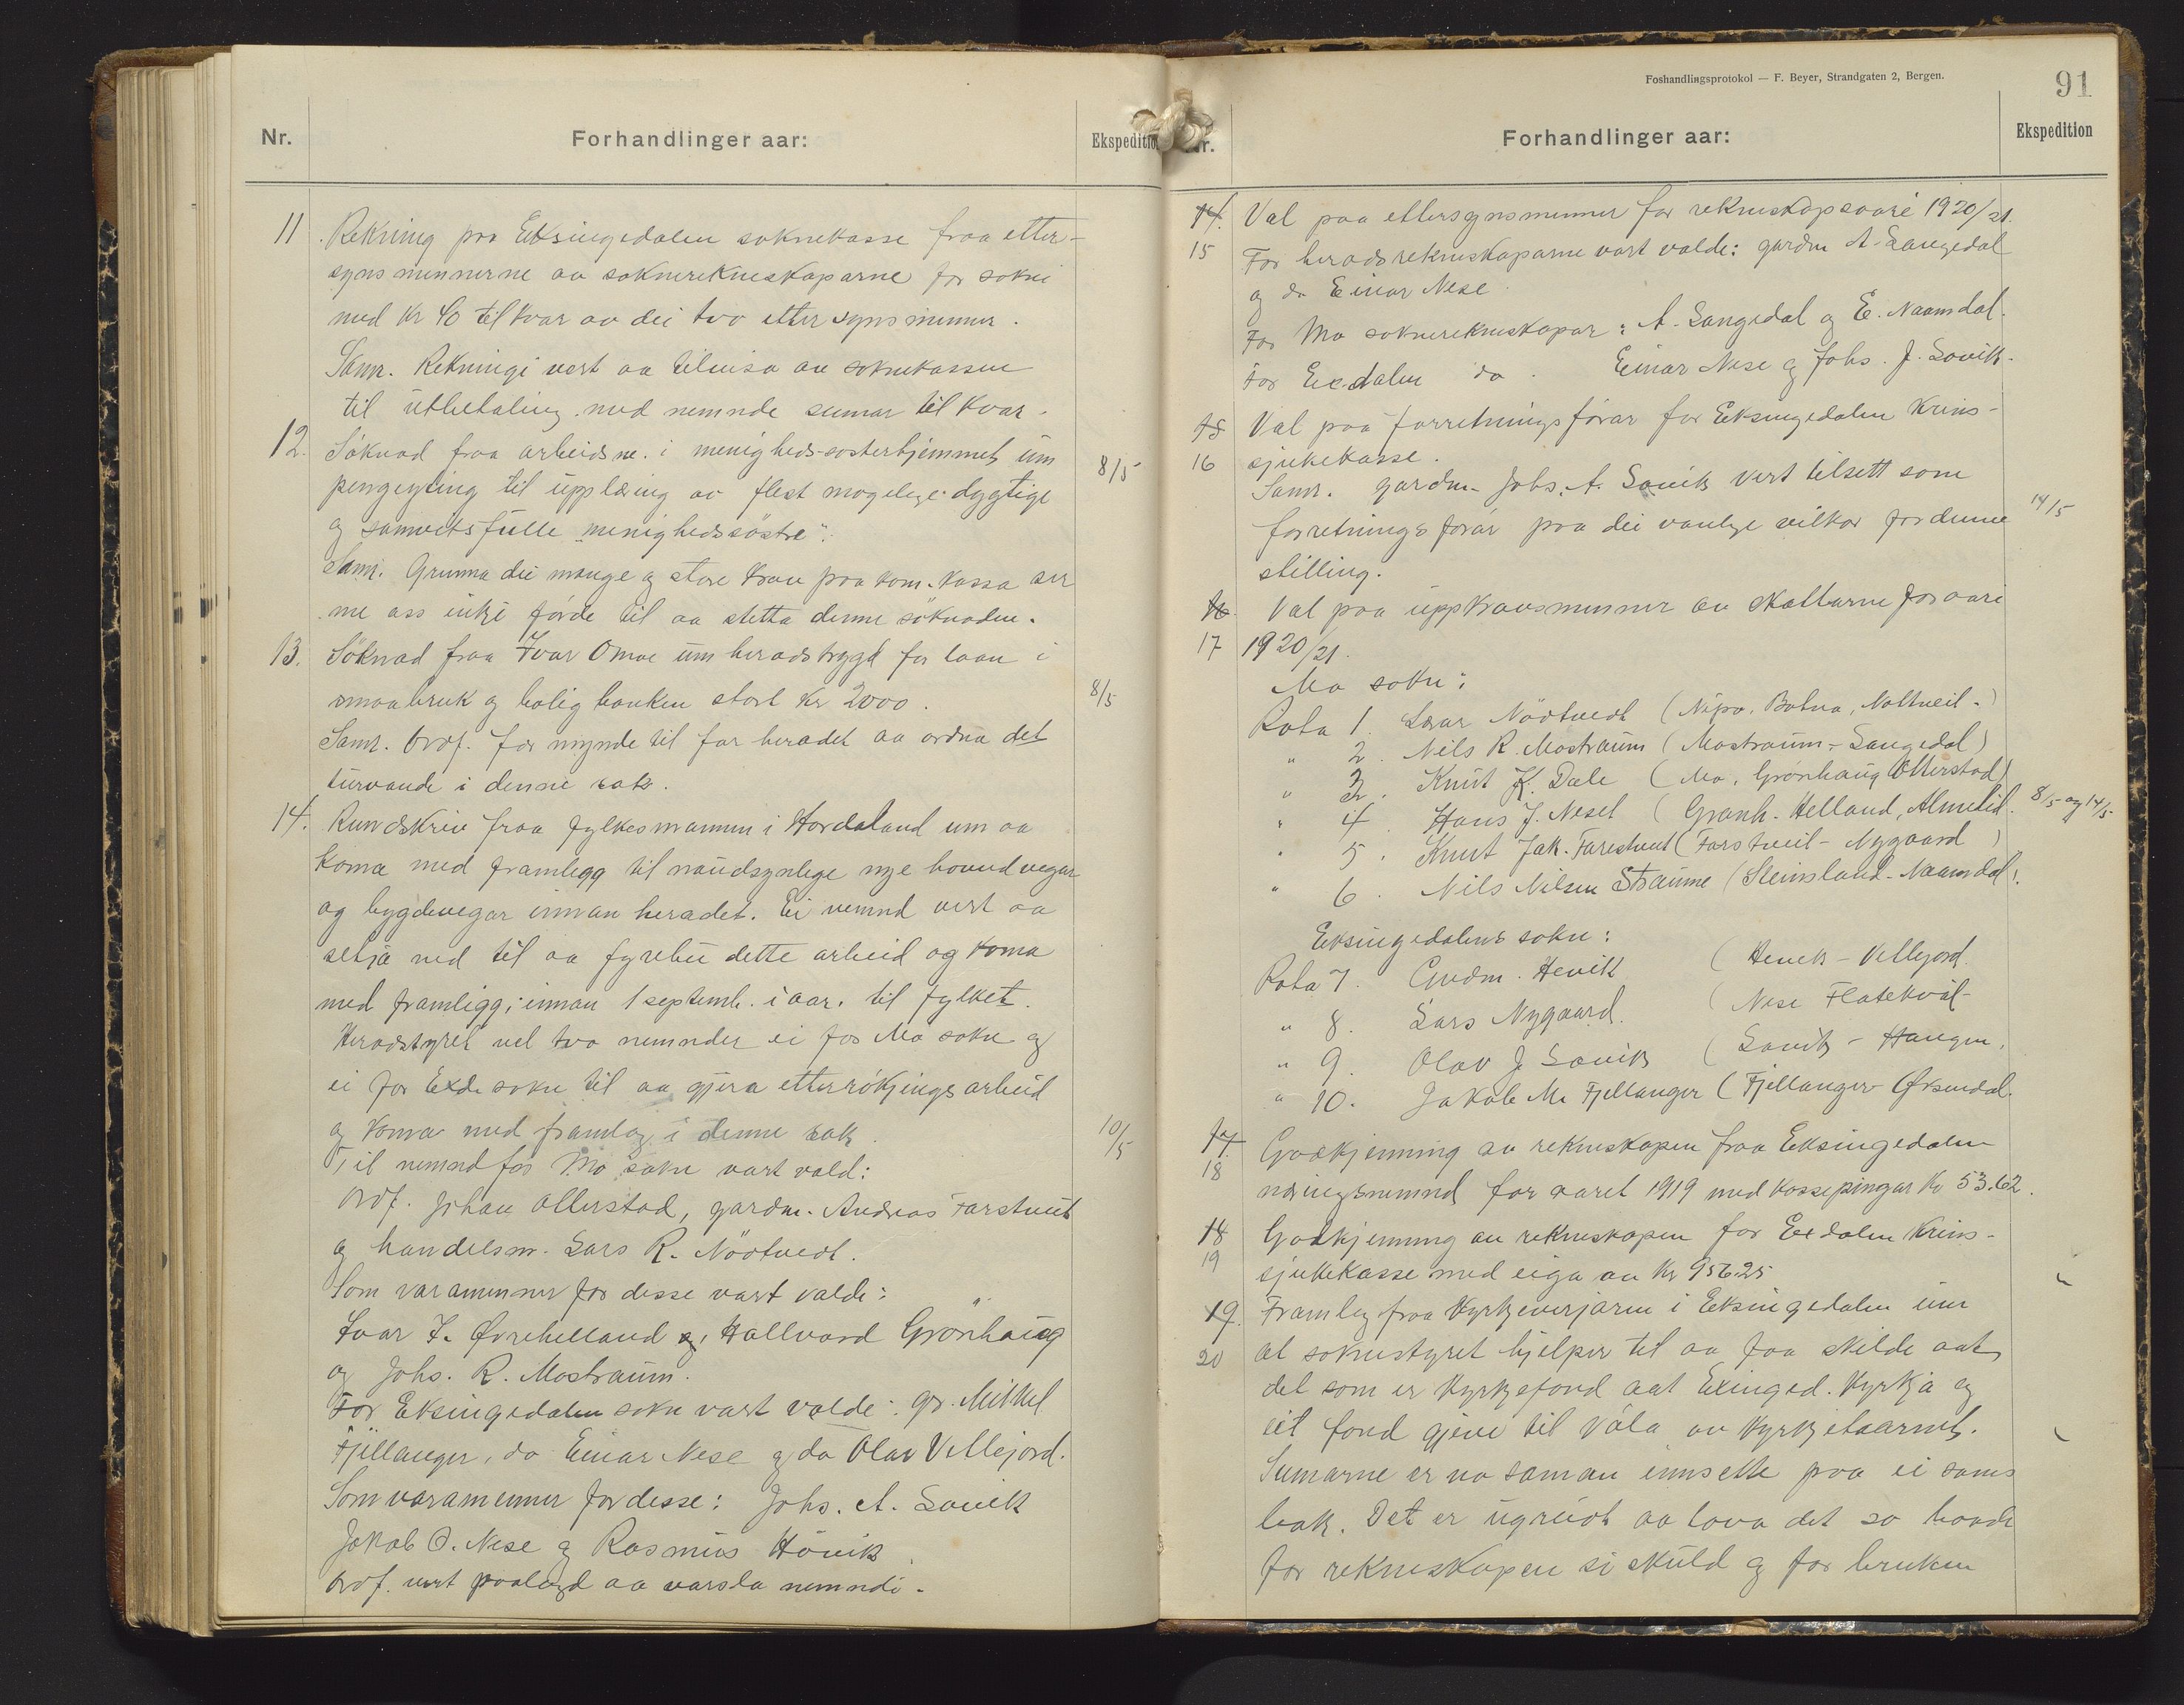 Nr.
Forhandlinger aar:
Ekspedition
11. Rekning paa Eksingedalen soknekasse fraa etter-
synsmennerne av soknerekneskaparne for sokni
med kr 40 til kvar av dei tvo ettersynsmenner.
Samr. Rekningi vert aa tilvisa av soknekassen
til utbetaling med nemnde sumar til kvar.
12. Söknad fraa arbeidsne. i menigheds-søsterhjemmet um
pengeyting til upplæring av flest mogelege dygtige
8/5
og samvitsfulle "menighedssöstre".
Samr. Grunna dei mange og store krav paa kom.kassa ser
me oss inkje förde til aa stetta denne söknaden.
13. Söknad fraa Ivar Omae um heradstrygd for laan i
smaabruk og boligbanken stort kr 2000.
8/5
Samr. Ordf. fær mynde til for heradet aa ordna det
turvande i denne sak.
14. Rundskriv fraa fylkesmannen i Hordaland um aa
koma med framlegg til naudsynlege nye hovudvegar
og bygdevegar innan heradet. Ei nemnd vert aa
setja ned til aa fyrebu dette arbeid og koma
med framlegg, innan 1 septemb. i aar. til fylket.
Heradstyret vel tvo nemnder ei for Mo sokn og
ei for Exd. sokn til aa gjera etterrökjingsarbeid
og koma med framlag i denne sak.
10/5
Til nemnd for Mo sokn vart vald:
Ordf. Johan Otterstad, gardm. Andreas Farstveit
og handelsm. Lars R. Nöttvedt.
Som varamenner for desse vart valde:
Ivar J. Øvrehelland og, Hallvard Grönhaug
og Johs. R. Mostraum.
For Eksingedalen sokn vart valde: gr. Mikkel
Fjellanger, do Einar Nese og do Olav Vetlejord.
Som varamenner for desse: Johs. A. Lavik
Jakob O. Nese og Rasmus Hövik.
Ordf. vert paalagd aa varsla nemndi.
Foshandlingsprotokol — F. Beyer, Strandgaten 2, Bergen.
91
Nr.
Forhandlinger aar:
Ekspedition
14. Val paa ettersynsmenner for rekneskapsaare 1920/21.
15 For heradsrekneskaparne vart valde: gardm A. Langedal
og do Einar Nese.
For Mo soknerekneskapar: A. Langedal og E. Naamdal.
For Exdalen do. Einar Nese og Johs. J. Lavik.
15 Val paa forretningsförar for Eksingedalen krins-
16 sjukekasse.
Samr. gardm. Johs. A. Lavik vert tilsett som
forretningsförar paa dei vanlege vilkor for denne
14/5
stilling.
16 Val paa uppkravsmenner av skattarne for aari
17 1920/21.
Mo sokn:
Rota 1. Lærar Nöttvedt (Nipo, Botna, Nottveit.)
" 2. Nils R. Mostraum (Mostraum-Langedal)
" 3. Knut K. Dale (Mo, Grönhaug Otterstad)
" 4. Hans J. Neset (Granh. Helland, Almelid.
8/5 og 14/5.
" 5. Knut Jak. Farestveit (Farstveit - Nygaard)
" 6. Nils Nilsen Straume (Steinsland-Naamdal).
Eksingedalens sokn:
Rota 7. Gudm. Hevik (Hevik - Vetlejord.
" 8. Lars Nygaard. (Nese Flatekvål-
" 9. Olav J Lavik (Lavik - Haugen.
" 10. Jakob M. Fjellanger (Fjellanger-Øksendal.
17. Godkjenning av rekneskapen fraa Eksingedalen
18 næringsnemnd for aaret 1919 med kassepengar kr 53.62.
18 Godkjenning av rekneskapen for Exdalen krins-
19 sjukekasse med eiga av kr 956.25
19. Framlegg fraa Kyrkjeverjarne i Eksingedalen um
20 at soknestyret hjelper til aa faa skilde aat
det som er Kyrkjefond aat Exinged. Kyrkja og
eit fond gjeve til våla av Kyrkjetaarnet.
Sumarne er no saman innsette paa ei sams
bok. Det er ugreidt aa lova det so baade
for rekneskapen si skuld og for bruken